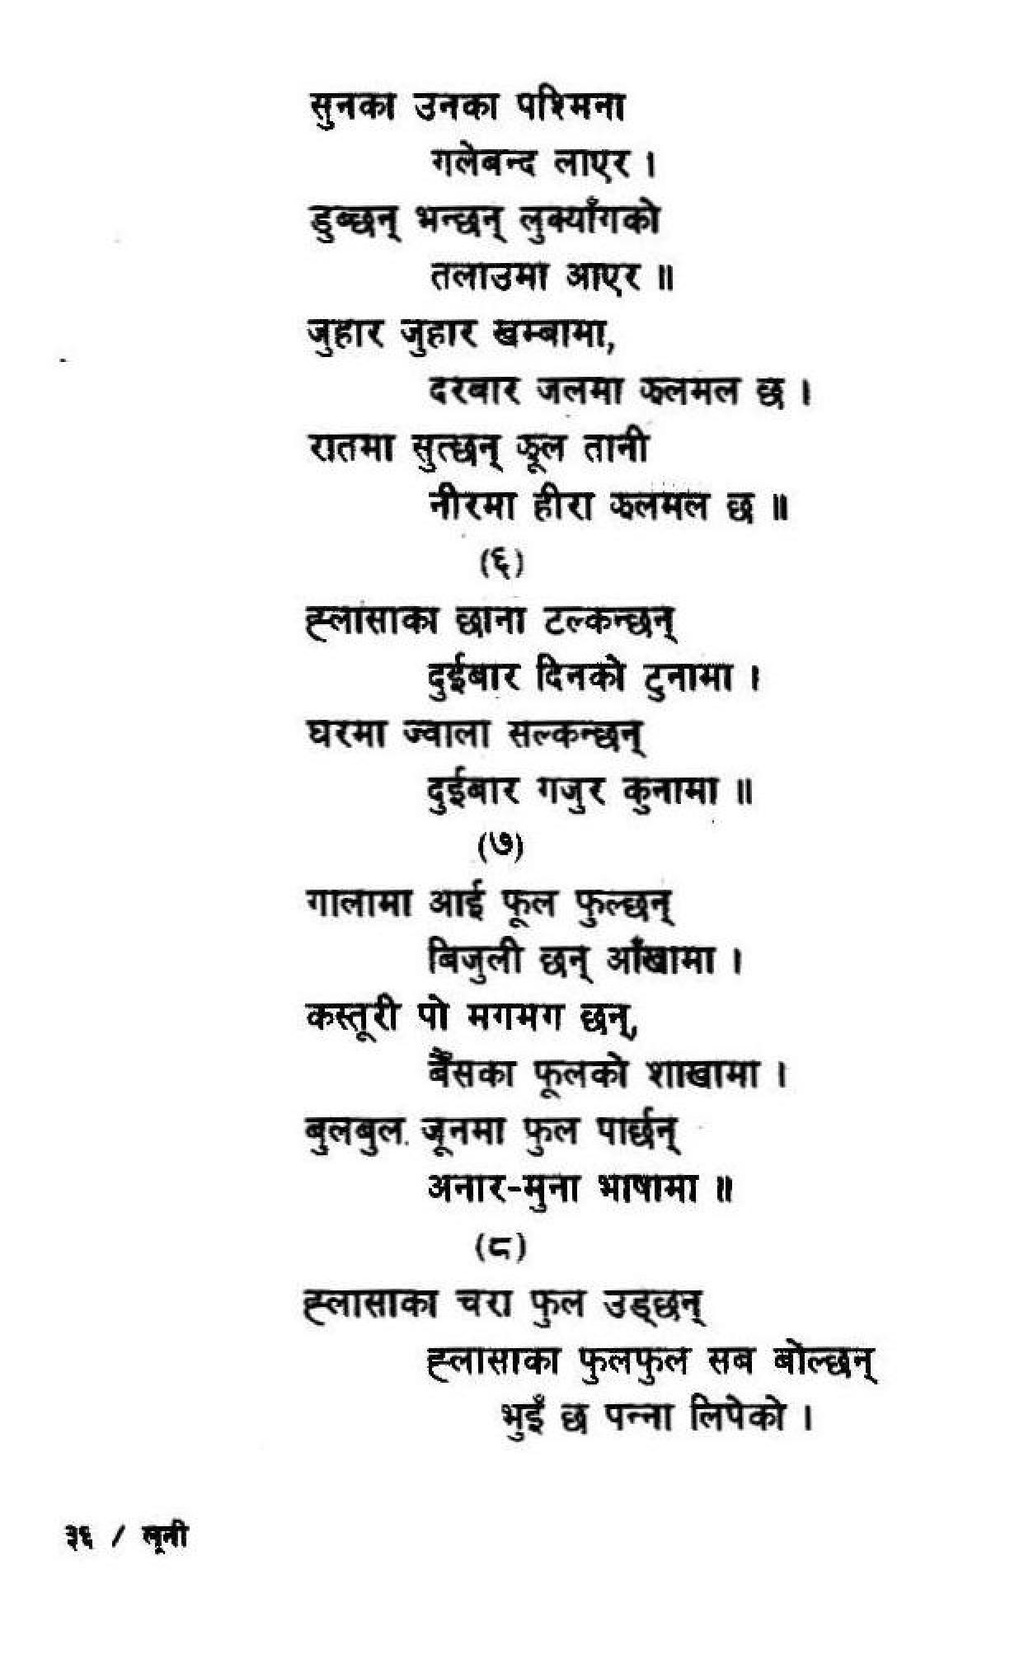 सुनका उनका पश्मिना
गलेबन्द लाएर ।
डुब्छन् भन्छन् लुक्याँगको
तलाउमा आएर ॥
जुहार जुहार खम्बामा,
दरबार जलमा झलमल छ ।
रातमा सुत्छन् झूल तानी
नीरमा हीरा झलमल छ ॥
(६)
ह्लासाका छाना टल्कन्छन्
दुईबार दिनको टुनामा ।
घरमा ज्वाला सल्कन्छन्
दुईबार गजुर कुनामा ॥
(७)
गालामा आई फूल फुल्छन्
बिजुली छन् आँखामा ।
कस्तूरी पो मगमग छन्,
बैँसका फूलको शाखामा ।
बुलबुल जूनमा फुल पार्छन्
अनार-मुना भाषामा ॥
(८)
ह्लासाका चरा फुल उड्छन्
ह्लासाका फुलफुल सब बोल्छन्
भुइँ छ पन्ना लिपेको ।
३६ / लूनी